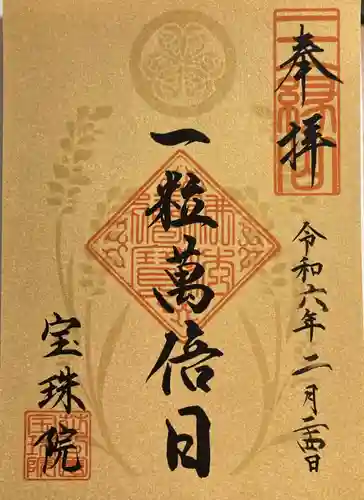 奉拝
令和六年二月二四日
一粒萬倍日
宝珠院